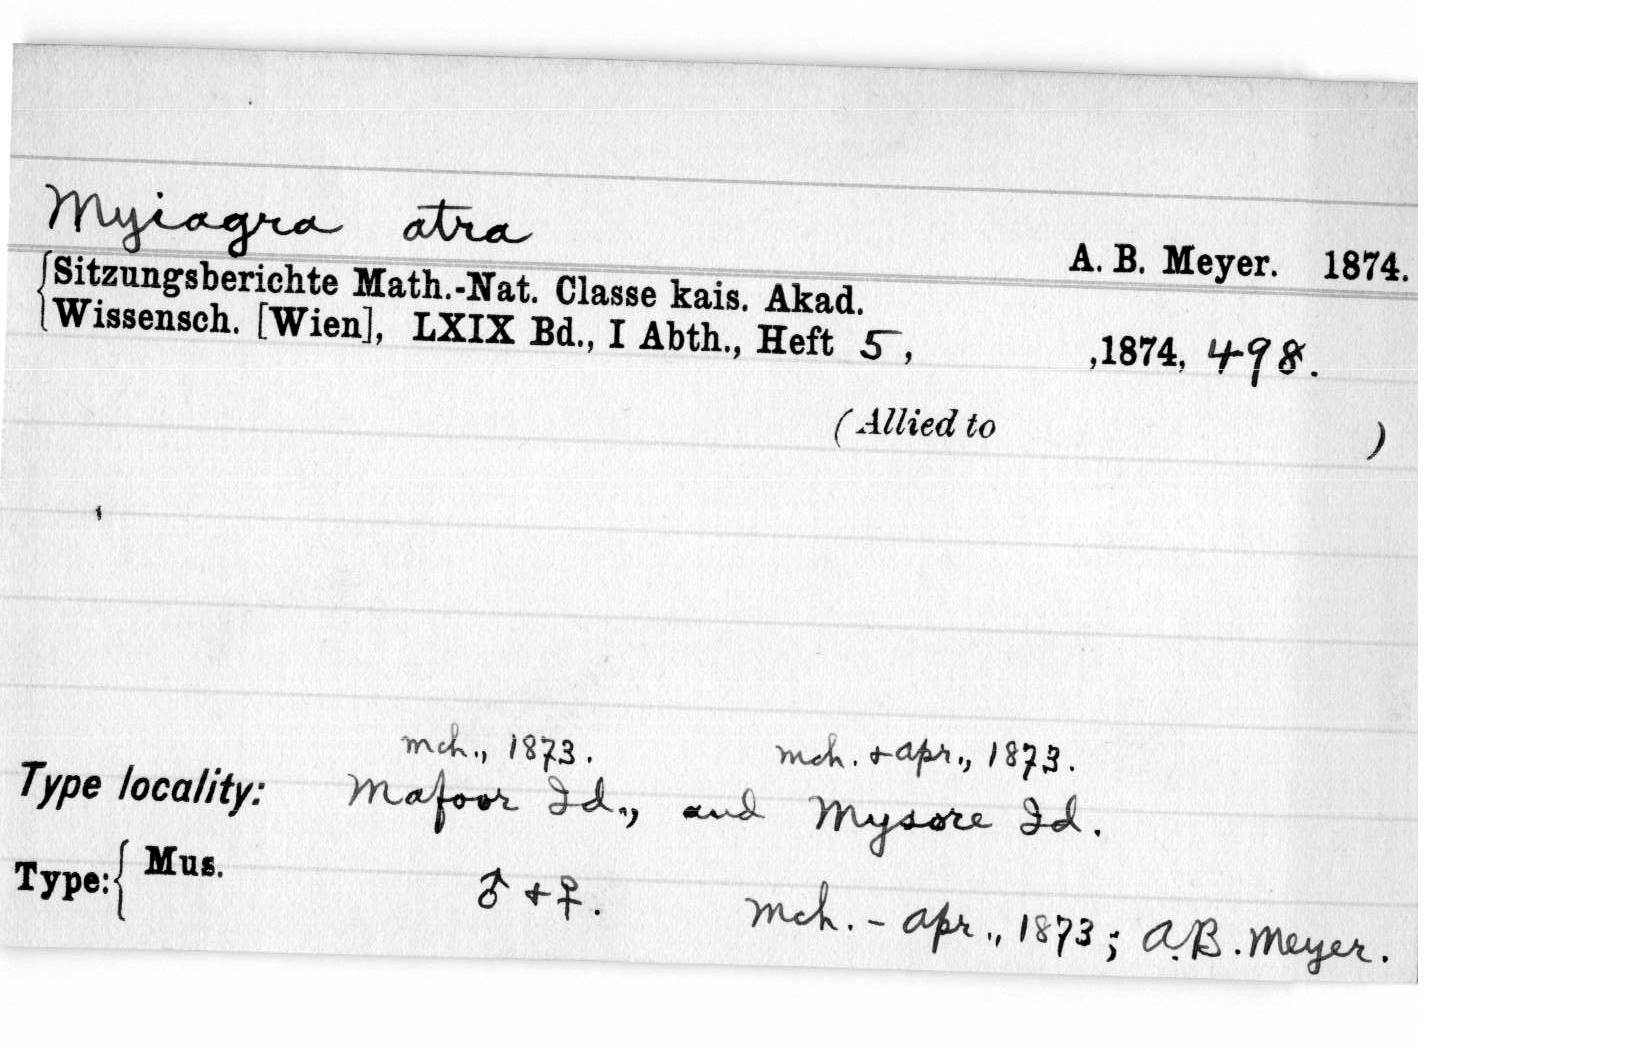 Myiagra atra
A. B. Meyer. 1874.
{Sitzungsberichte Math.-Nat. Classe kais. Akad.
Wissensch. [Wien], LXIX Bd., I Abth., Heft 5, ,1874, 498.
(Allied to )
Mch., 1873. Mch. + Apr., 1873.
Type locality: Mafoor Id., and Mysore Id.
Type: { Mus. ♂ + ♀. Mch. - Apr., 1873; A.B. Meyer.